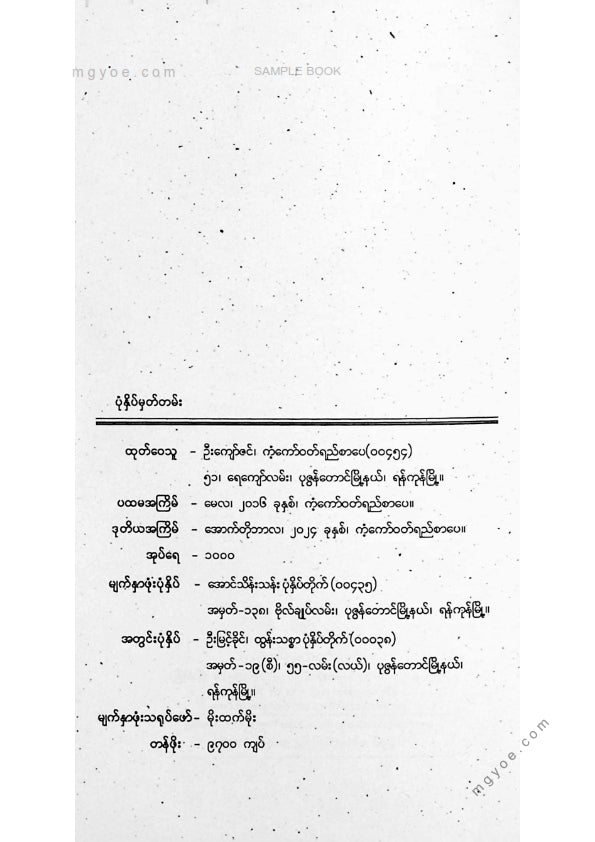 mgyoe.com
SAMPLE BOOK
ပုံနှိပ်မှတ်တမ်း
ထုတ်ဝေသူ - ဦးကျော်ဇင်၊ ကံ့ကော်ဝတ်ရည်စာပေ(၀၀၄၅၄)
၅၁၊ ရေကျော်လမ်း၊ ပုဇွန်တောင်မြို့နယ်၊ ရန်ကုန်မြို့။
ပထမအကြိမ် - မေလ၊ ၂၀၁၆ ခုနှစ်၊ ကံ့ကော်ဝတ်ရည်စာပေ။
ဒုတိယအကြိမ် - အောက်တိုဘာလ၊ ၂၀၂၄ ခုနှစ်၊ ကံ့ကော်ဝတ်ရည်စာပေ။
အုပ်ရေ - ၁၀၀၀
မျက်နှာဖုံးပုံနှိပ် - အောင်သိန်းသန်းပုံနှိပ်တိုက် (၀၀၄၃၅)
အမှတ်-၁၃၈၊ ဗိုလ်ချုပ်လမ်း၊ ပုဇွန်တောင်မြို့နယ်၊ ရန်ကုန်မြို့။
အတွင်းပုံနှိပ် - ဦးမြင့်ခိုင်၊ ထွန်းသစ္စာပုံနှိပ်တိုက် (၀၀၀၃၈)
အမှတ်-၁၉(စီ)၊ ၅၅-လမ်း(လယ်)၊ ပုဇွန်တောင်မြို့နယ်၊
ရန်ကုန်မြို့။
မျက်နှာဖုံးသရုပ်ဖော်- မိုးထက်မိုး
တန်ဖိုး - ၉၇၀၀ ကျပ်
mgyoe.com